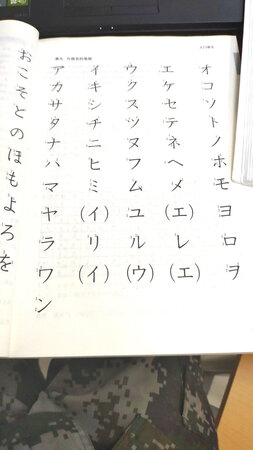 おこそとのほもよろを
アイウエオ
カキクケコ
サシスセソ
タチツテト
ナニヌネノ
ハヒフヘホ
マミムメモ
ヤ（イ）ユ（エ）ヨ
ラリルレロ
ワ（イ）（ウ）（エ）ヲ
ン